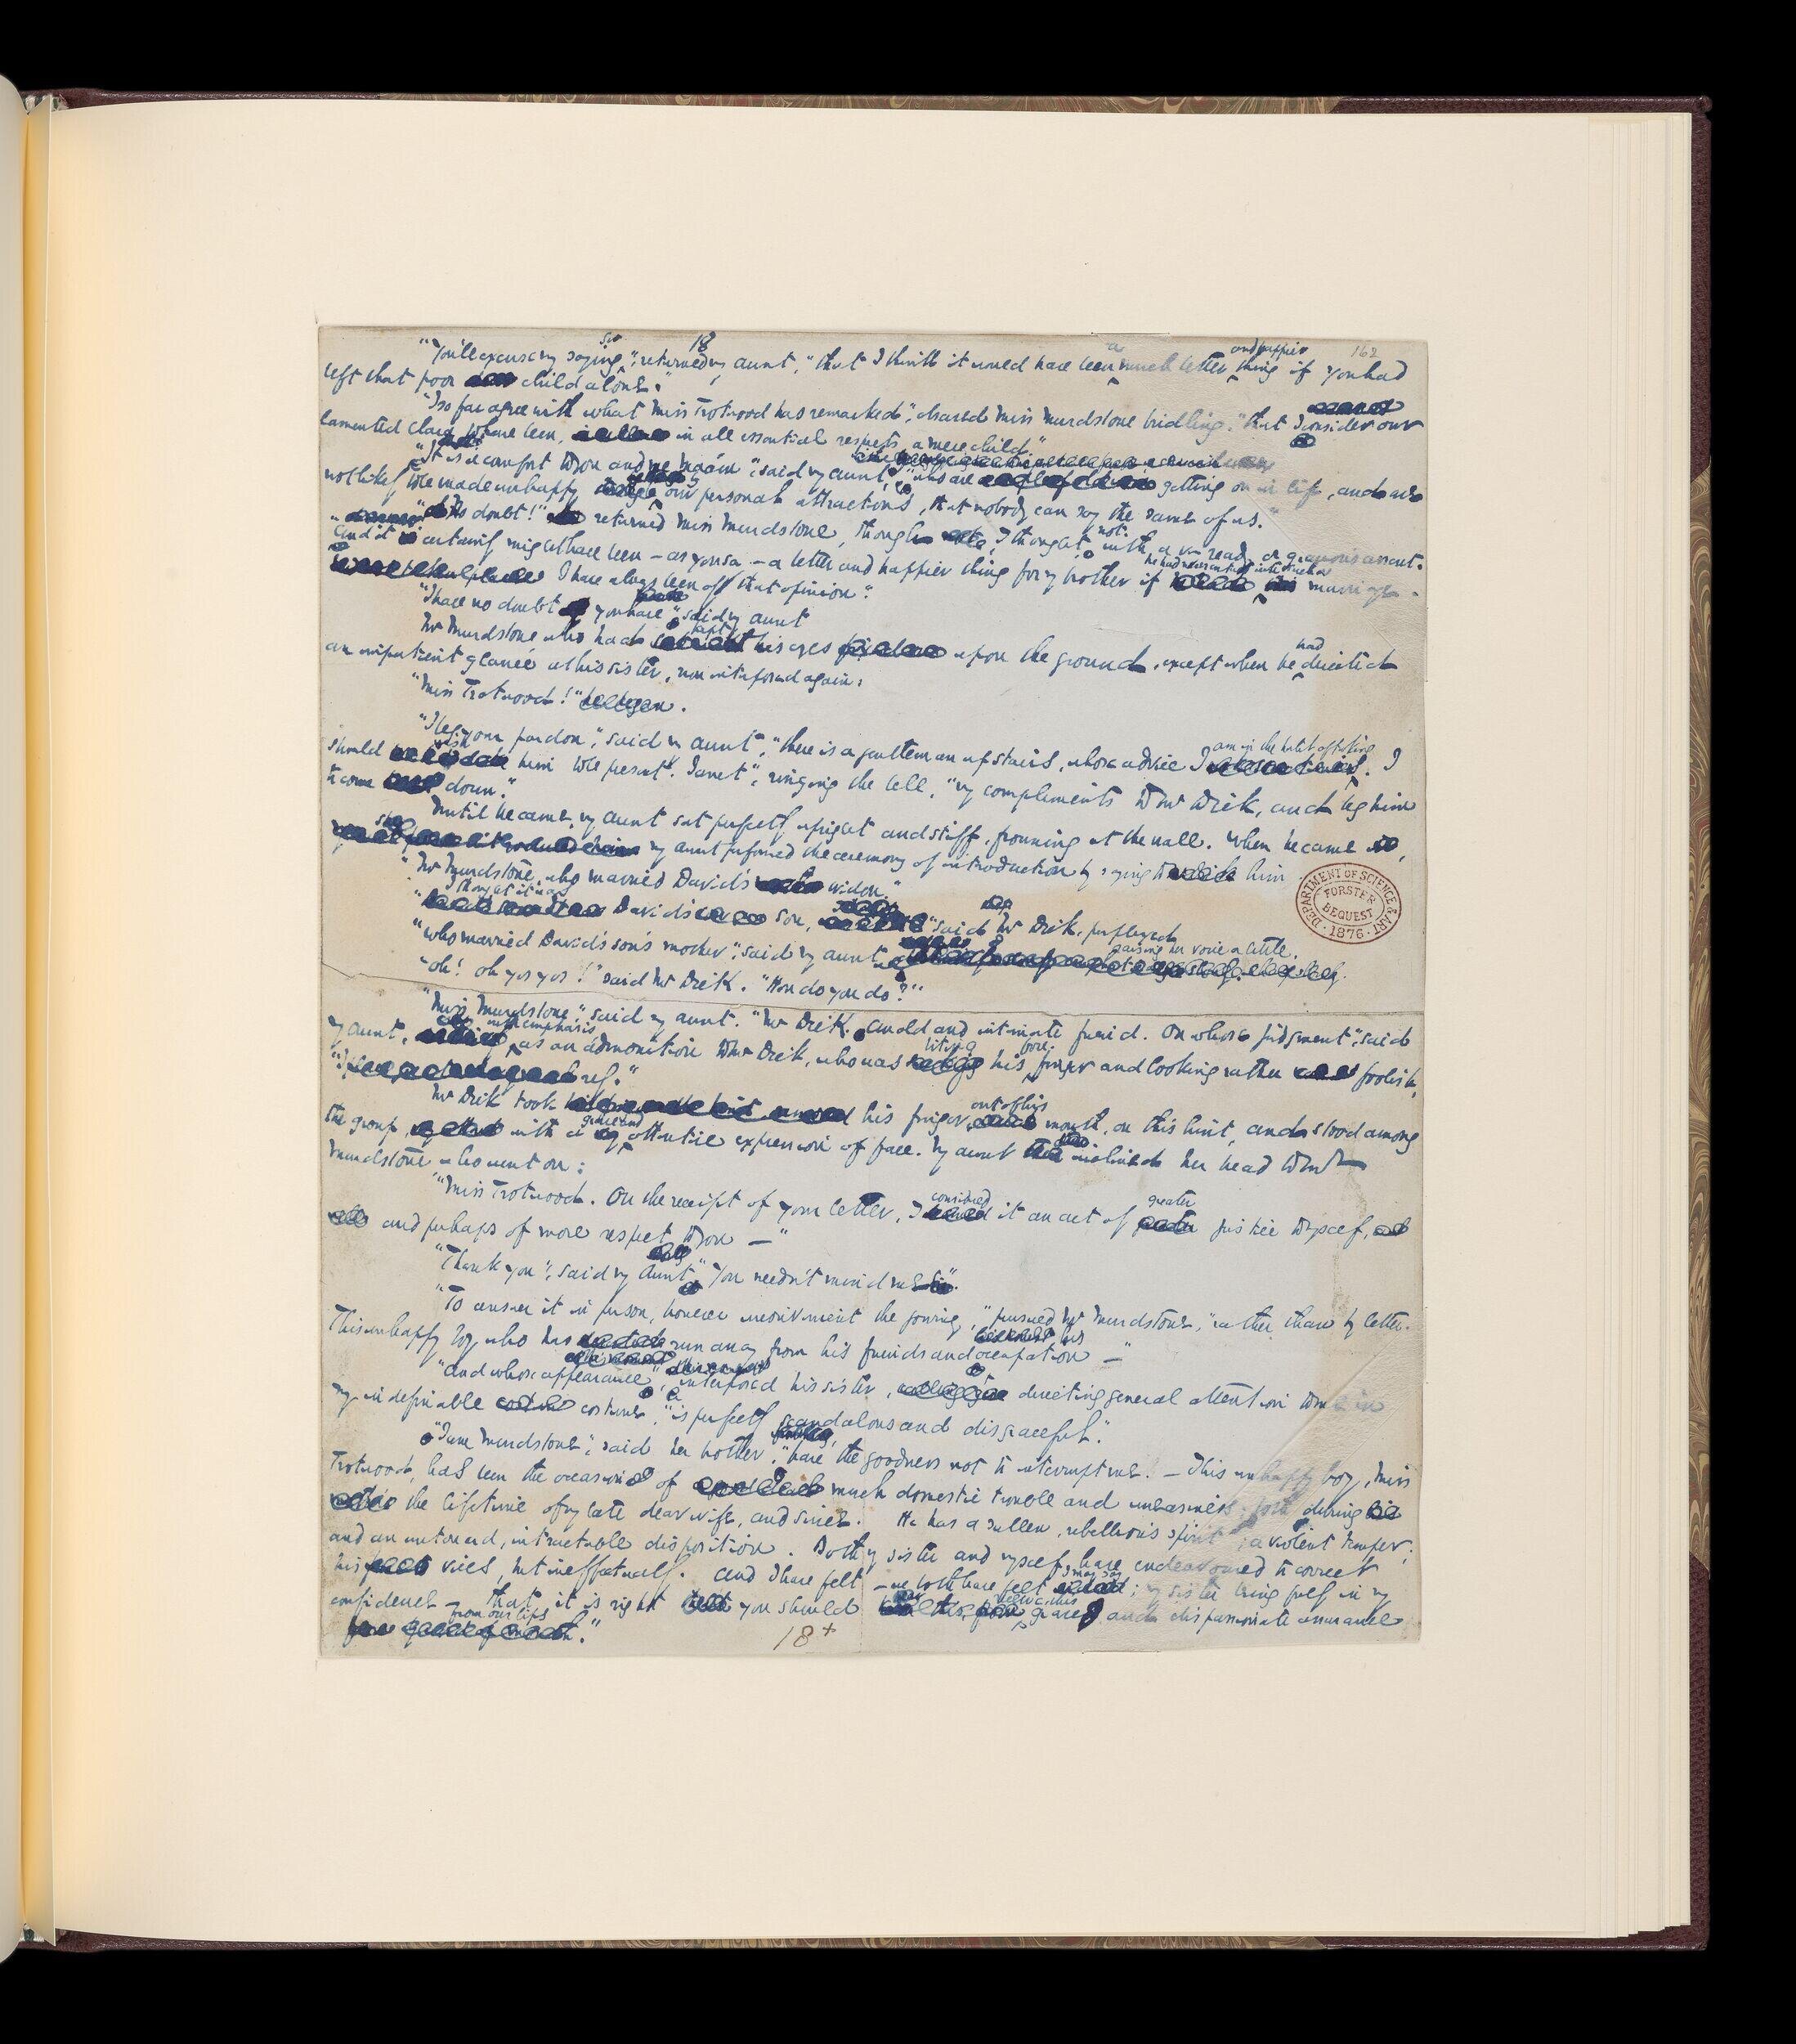 18
162
"You'll excuse my saying, sir," returned my aunt, "that I think it would have been a much better and happier thing if you had
left that poor child alone."
"I so far agree with what Miss Trotwood has remarked," observed Miss Murdstone bridling, "that I consider our
lamented Clara to have been, in all essential respects, a mere child."
"It is a comfort to you and me ma'am," said my aunt, "who are getting on in life, and are
not likely to be made unhappy by our personal attractions, that nobody can say the same of us."
"No doubt!" returned Miss Murdstone, though I thought, not with a very ready or gracious assent.
"And it certainly might have been — as you say — a better and happier thing for my brother if he had never entered into such a marriage.
I have always been of that opinion."
"I have no doubt you have," said my aunt
Mr Murdstone who had kept his eyes upon the ground, except when he had directed
an impatient glance at his sister, now interposed again:
"Miss Trotwood!"
"I beg your pardon," said my aunt, "there is a gentleman upstairs, whose advice I am in the habit of taking. I
should wish him to be present. Janet", ringing the bell, "my compliments to Mr Dick, and beg him
to come down."
Until he came, my aunt sat perfectly upright and stiff, frowning at the wall. When he came,
my aunt performed the ceremony of introduction by saying to him
"Mr Murdstone, who married David's widow."
"I thought it was David's son," said Mr Dick, perplexed
"Who married David's son's mother," said my aunt raising her voice a little.
"Oh! Oh yes yes!" said Mr Dick. "How do you do?"
"Miss Murdstone," said my aunt. "Mr Dick. An old and intimate friend. On whose judgment", said
my aunt, with emphasis as an admonition to Mr Dick, who was biting his fore finger and looking rather foolish,
"I rely."
Mr Dick took his finger out of his mouth, on this hint, and stood among
the group, with a grave and attentive expression of face. My aunt inclined her head to Mr
Murdstone who went on:
"Miss Trotwood. On the receipt of your letter, I considered it an act of greater justice to myself,
and perhaps of more respect to you —"
"Thank you", said my aunt, "You needn't mind me."
"To answer it in person, however inconvenient the journey," pursued Mr Murdstone, "rather than by letter.
This unhappy boy who has run away from his friends and his occupation —"
"And whose appearance", interposed his sister, directing general attention to me in
my indefinable costume, "is perfectly scandalous and disgraceful."
"Jane Murdstone", said her brother, "have the goodness not to interrupt me. — This unhappy boy, Miss
Trotwood, has been the occasion of much domestic trouble and uneasiness, both during
the lifetime of my late dear wife, and since. He has a sullen, rebellious spirit; a violent temper;
and an untoward, intractable disposition. Both my sister and myself have endeavoured to correct
his vices, but ineffectually. And I have felt — we both have felt I may say; my sister being fully in my
confidence — that it is right you should receive this grave and dispassionate assurance
from our lips."
18+
DEPARTMENT OF SCIENCE & ART
FORSTER
BEQUEST
1876